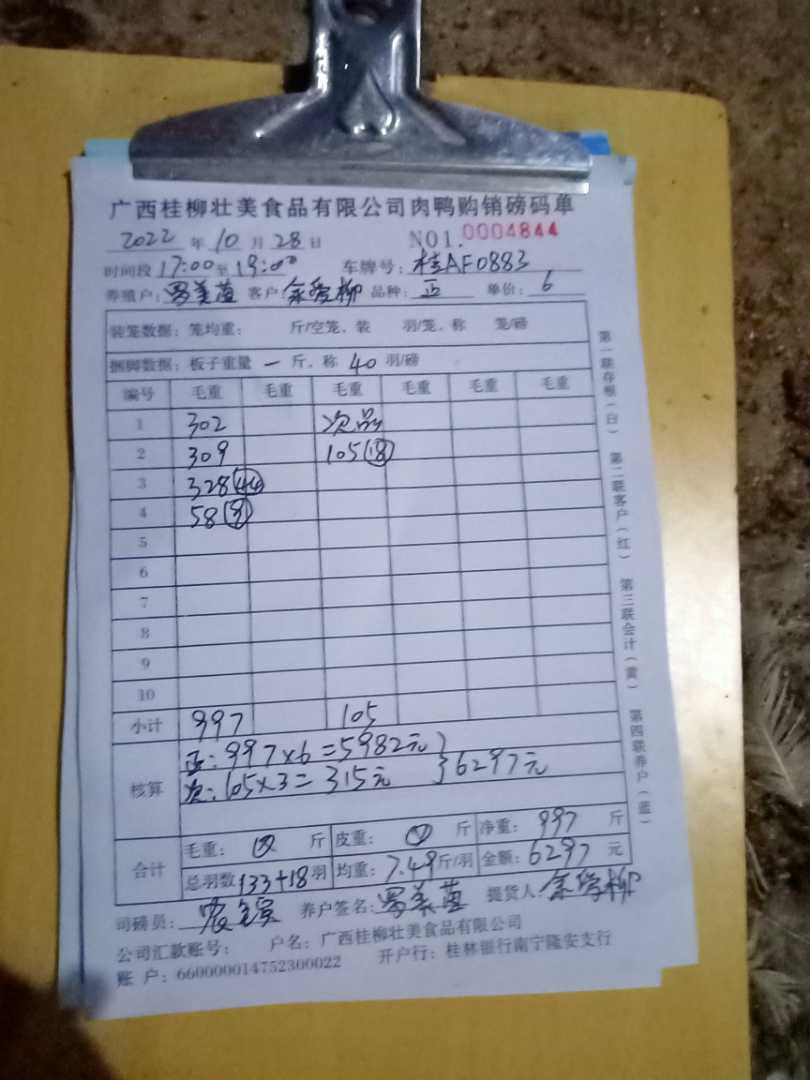 广西桂柳壮美食品有限公司肉鸭购销磅码单
2022 年 10 月 28 日 NO1.0004844
时间段 17:00 至 19:00 车牌号: 桂AF0883
养殖户: 罗美莲 客户: 余爱柳 品种: 正 单价: 6
装笼数据: 笼均重: 斤/空笼、装 羽/笼、称 笼/磅
捆脚数据: 板子重量 一 斤、称 40 羽/磅
编号 毛重 毛重 毛重 毛重 毛重 毛重
1 302 次品
2 309 105(18)
3 328(44)
4 58(9)
5
6
7
8
9
10
小计 997 105
核算 正: 997×6=5982元 } 6297元
次: 105×3=315元
合计 毛重: 斤 皮重: 斤 净重: 997 斤
总羽数 133+18 羽 均重: 7.49 斤/羽 金额: 6297 元
司磅员: 养户签名: 罗美莲 提货人: 余爱柳
公司汇款账号: 户名: 广西桂柳壮美食品有限公司
账 户: 660000014752300022 开户行: 桂林银行南宁隆安支行
第一联存根(白) 第二联客户(红) 第三联会计(黄) 第四联养户(蓝)